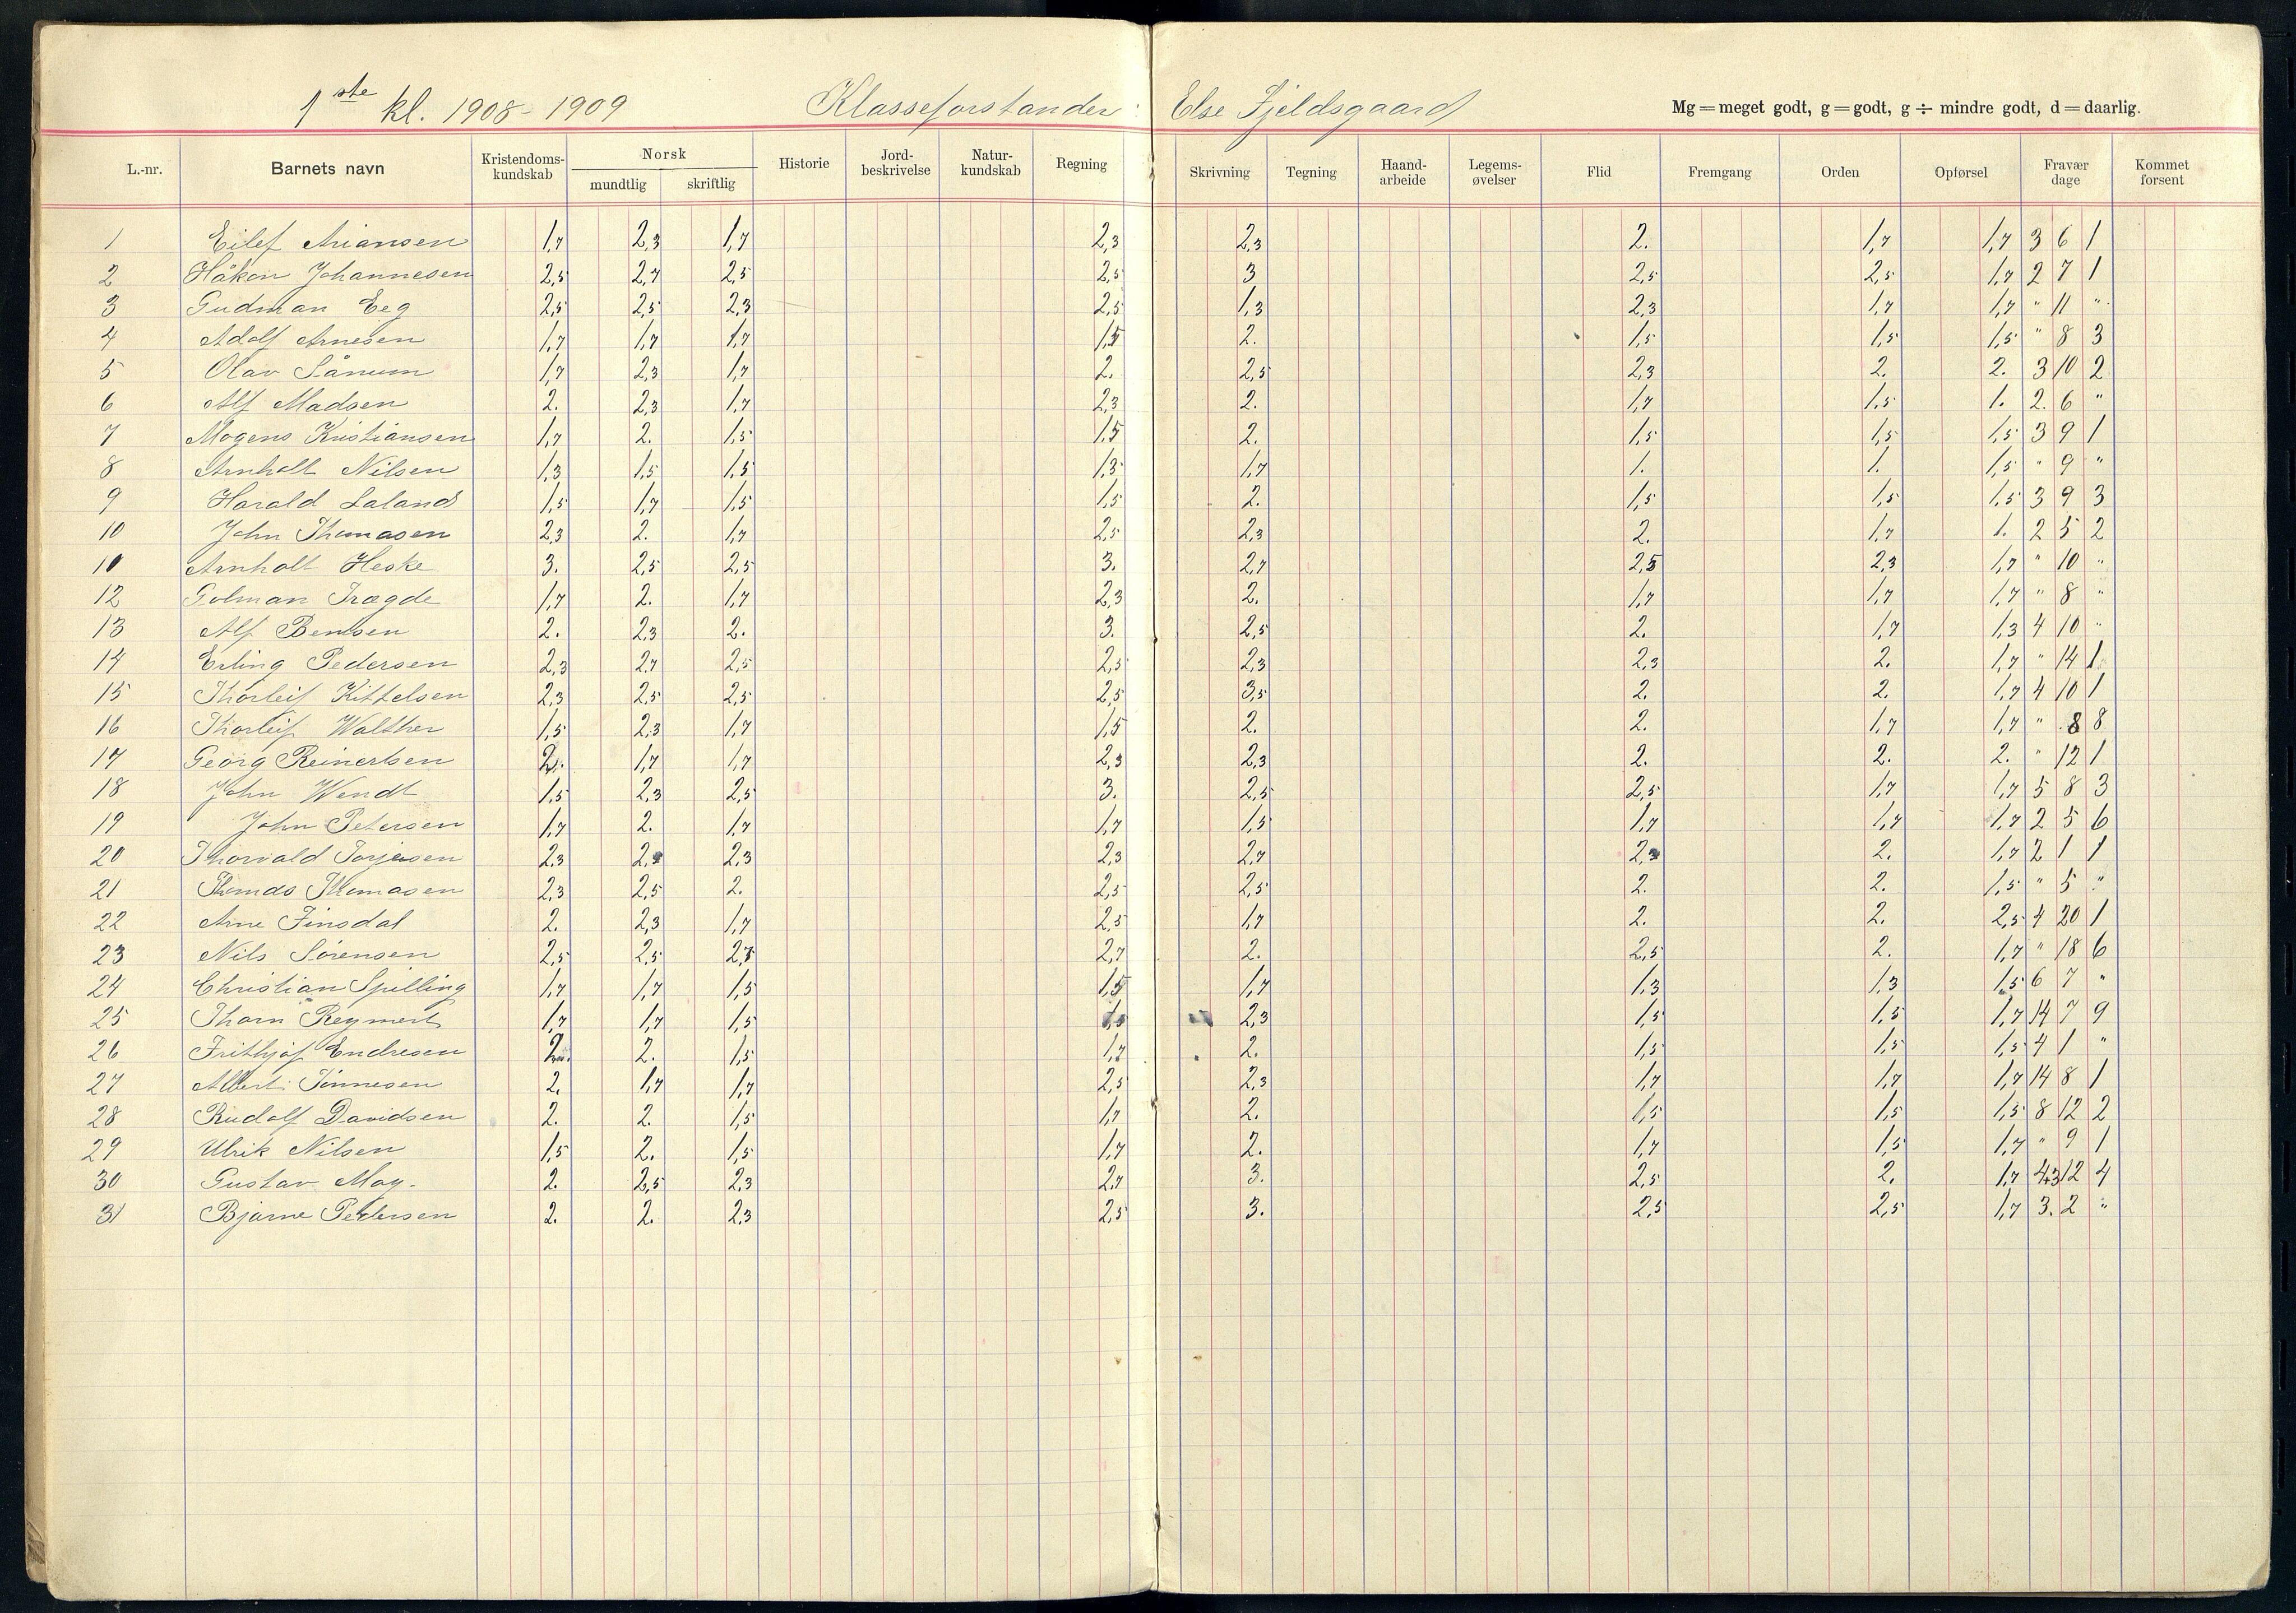 1ste kl. 1908-1909 Klasseforstander: Else Fjeldsgaard Mg = meget godt, g = godt, g ÷ mindre godt, d = daarlig.
L.-nr. Barnets navn Kristendoms-kundskab Norsk mundtlig skriftlig Historie Jord-beskrivelse Natur-kundskab Regning Skrivning Tegning Haand-arbeide Legems-øvelser Flid Fremgang Orden Opførsel Fravær dage Kommet forsent
1 Eilef Ariansen 1,7 2,3 1,7 2,3 2,3 2. 1,7 1,7 3 6 1
2 Håkon Johannesen 2,5 2,7 2,5 2,5 3 2,5 2,5 1,7 2 7 1
3 Gudman Eeg 2,5 2,5 2,3 2,5 1,3 2,3 1,7 1,7 " 11 "
4 Adolf Arnesen 1,7 1,7 1,7 1,5 2. 1,5 1,5 1,5 " 8 3
5 Olav Sånum 1,7 2,3 1,7 2. 2,5 2,3 2. 2. 3 10 2
6 Alf Madsen 2. 2,3 1,7 2,3 2. 1,7 1,5 1. 2. 6 "
7 Mogens Kristiansen 1,7 2. 1,5 1,5 2. 1,5 1,5 1,5 3 9 1
8 Arnholt Nilsen 1,3 1,5 1,5 1,3 1,7 1. 1. 1,5 " 9 "
9 Harald Laland 1,5 1,7 1,5 1,5 2. 1,5 1,5 1,5 3 9 3
10 John Thomasen 2,3 2. 1,7 2,5 2,3 2. 1,7 1. 2 5 2
10 Arnholt Heske 3. 2,5 2,5 3. 2,7 2,5 2,3 1,7 " 10 "
12 Golman Trægde 1,7 2. 1,7 2,3 2. 1,7 1,7 1,7 " 8 "
13 Alf Bentsen 2. 2,3 2. 3. 2,5 2. 1,7 1,3 4 10 "
14 Erling Pedersen 2,3 2,7 2,5 2,5 2,3 2,3 2. 1,7 " 14 1
15 Thorleif Kittelsen 2,3 2,5 2,5 2,5 3,5 2. 2. 1,7 4 10 1
16 Thorleif Walther 1,5 2,3 1,7 1,5 2. 2. 1,7 1,7 " 8 8
17 Georg Reinertsen 2. 1,7 1,7 2,3 2,3 2. 2. 2. " 12 1
18 John Wendt 1,5 2,3 2,5 3. 2,5 2,5 1,7 1,7 5 8 3
19 John Petersen 1,7 2. 1,7 1,7 1,5 1,7 1,7 1,7 2 5 6
20 Thorvald Torjusen 2,3 2,3 2,3 2,3 2,7 2,3 2. 1,7 2 1 1
21 Thomas Thomasen 2,3 2,5 2. 2,5 2,5 2. 2. 1,5 " 5 "
22 Arne Finsdal 2. 2,3 1,7 2,5 1,7 2. 2. 2,5 4 20 1
23 Nils Sørensen 2,5 2,5 2,7 2,7 2. 2,5 2. 1,7 " 18 6
24 Christian Spilling 1,7 1,7 1,5 1,5 1,7 1,3 1,3 1,5 6 7 "
25 Thorn Reymert 1,7 1,7 1,5 2,3 1,5 1,5 1,7 14 7 9
26 Frithjof Endresen 2. 2. 1,5 1,7 2. 1,5 1,5 1,5 4 1 "
27 Albert Tønnesen 2. 1,7 1,7 2,5 2,3 1,7 1,7 1,7 14 8 1
28 Rudolf Davidsen 2. 2. 1,5 1,7 2. 1,5 1,5 1,5 8 12 2
29 Ulrik Nilsen 1,5 2. 1,5 1,7 2. 1,7 1,5 1,7 " 9 1
30 Gustav Moy. 2. 2,5 2,3 2,7 3. 2,5 2. 1,7 43 12 4
31 Bjarne Pedersen 2. 2. 2,3 2,5 3. 2,5 2,5 1,7 3. 2 "